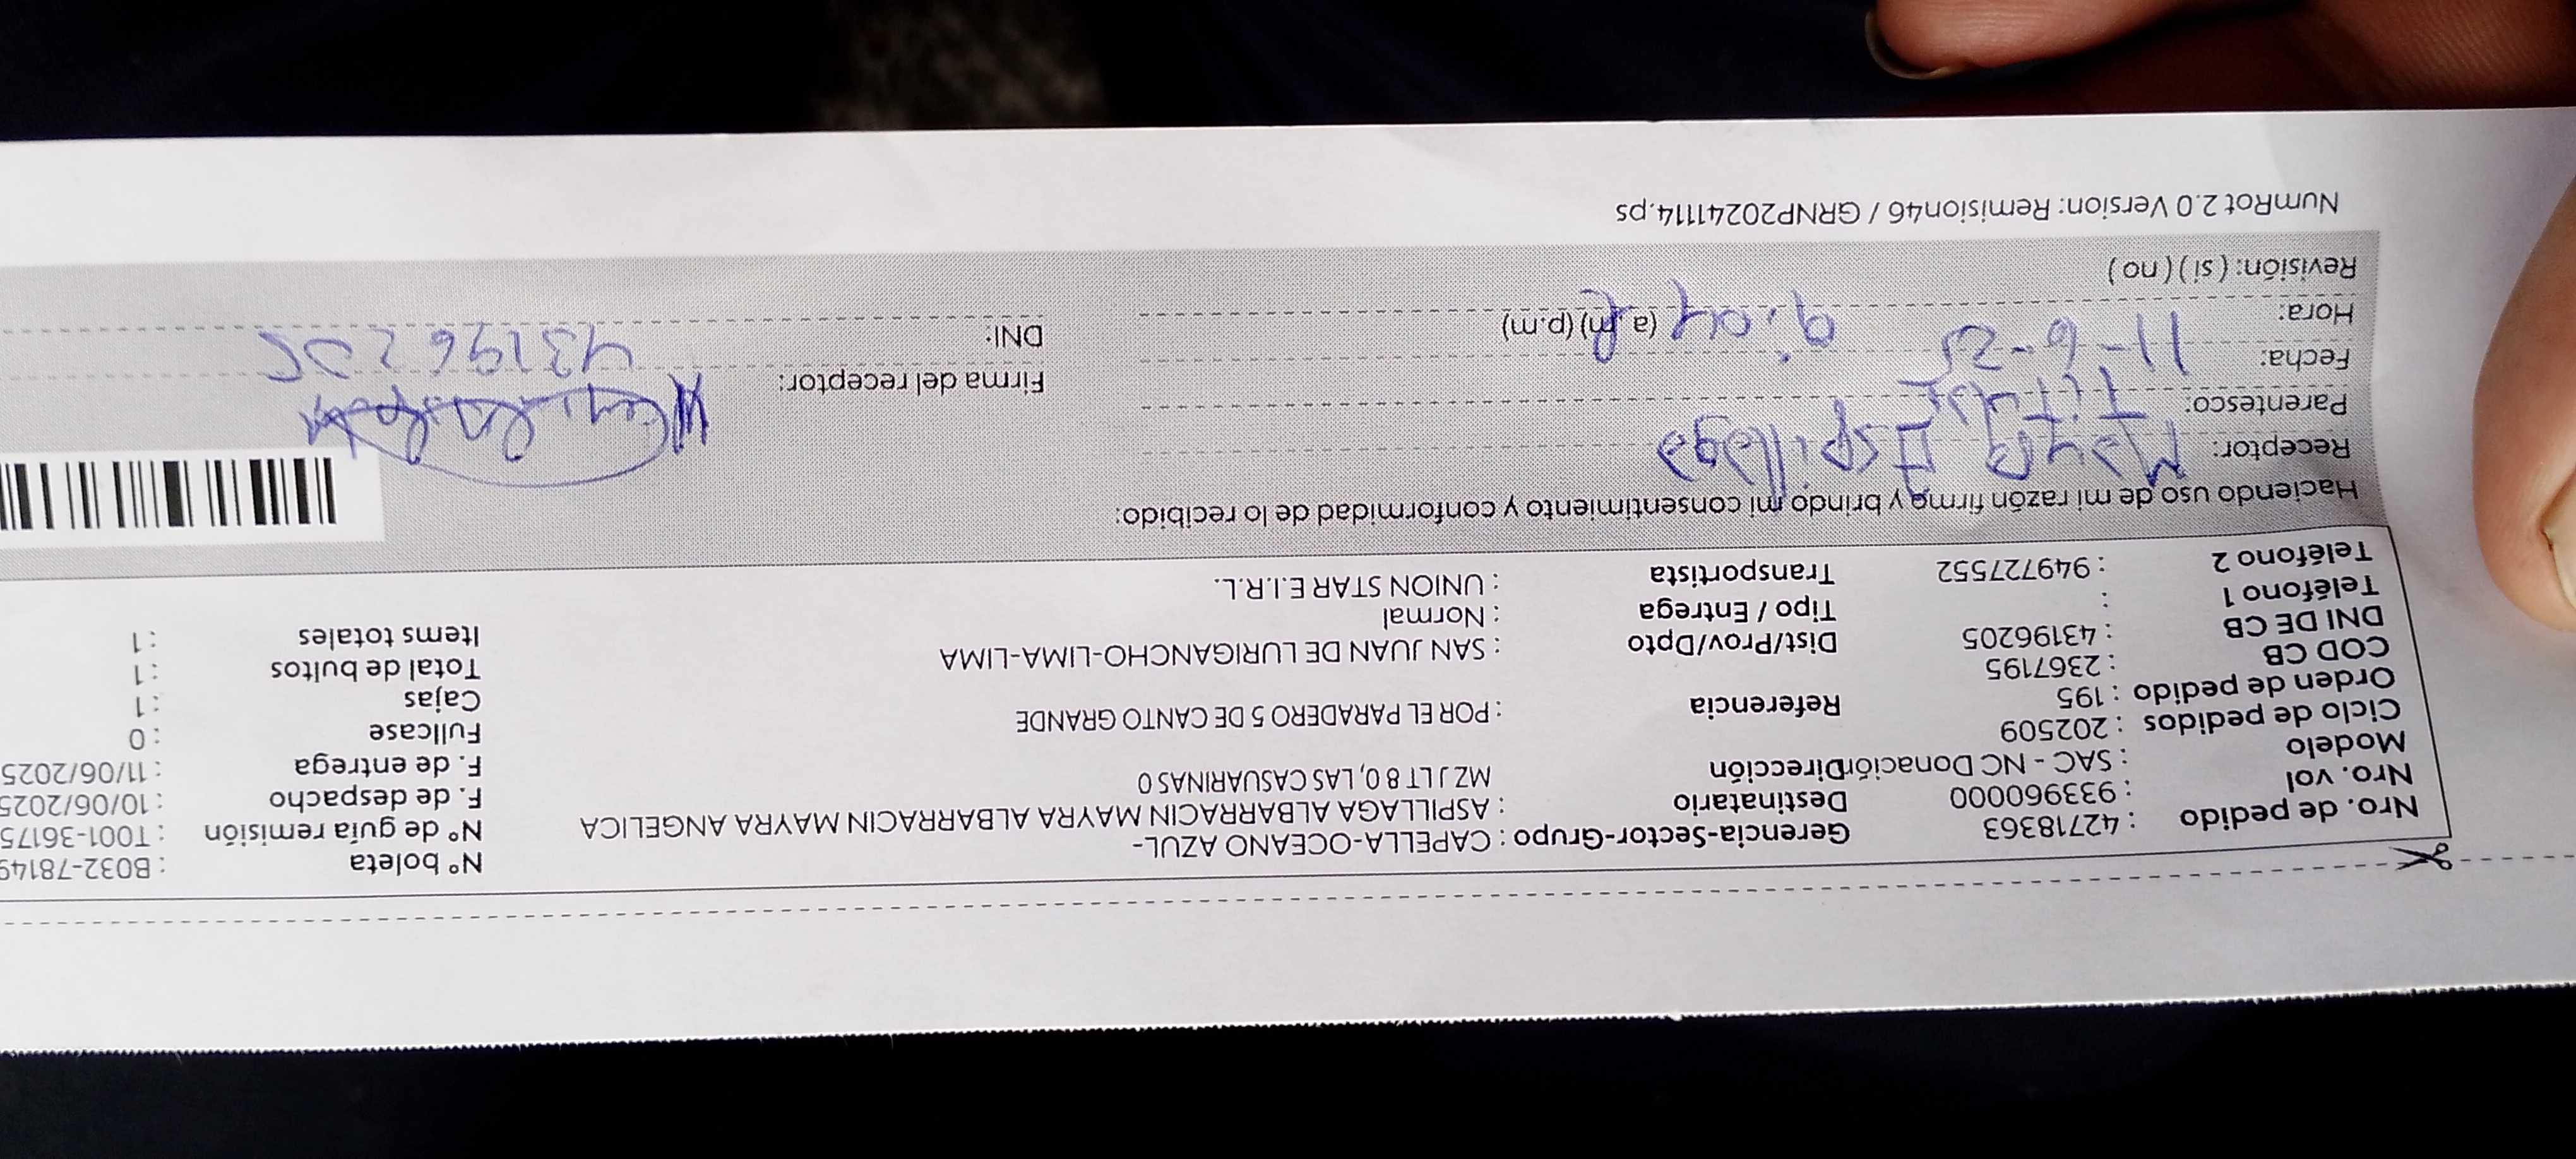 Nro. de pedido : 42718363 Gerencia-Sector-Grupo : CAPELLA-OCEANO AZUL- N° boleta : B032-78149
Nro. vol : 933960000 Destinatario : ASPILLAGA ALBARRACIN MAYRA ALBARRACIN MAYRA ANGELICA N° de guía remisión : T001-36175
Modelo : SAC - NC Donación Dirección MZ J LT 8 0, LAS CASUARINAS 0 F. de despacho : 10/06/2025
Ciclo de pedidos : 202509 F. de entrega : 11/06/2025
Orden de pedido : 195 Referencia : POR EL PARADERO 5 DE CANTO GRANDE Fullcase : 0
COD CB : 2367195 Cajas : 1
DNI DE CB : 43196205 Dist/Prov/Dpto : SAN JUAN DE LURIGANCHO-LIMA-LIMA Total de bultos : 1
Teléfono 1 : Tipo / Entrega : Normal Items totales : 1
Teléfono 2 : 949727552 Transportista : UNION STAR E.I.R.L.
Haciendo uso de mi razón firma y brindo mi consentimiento y conformidad de lo recibido:
Receptor: Mayra Aspillaga
Parentesco: Titular
Fecha: 11-6-25 Firma del receptor:
Hora: 9:04 (a.m) (p.m) DNI: 43196205
Revisión: ( si ) ( no )
NumRot 2.0 Version: Remision46 / GRNP20241114.ps